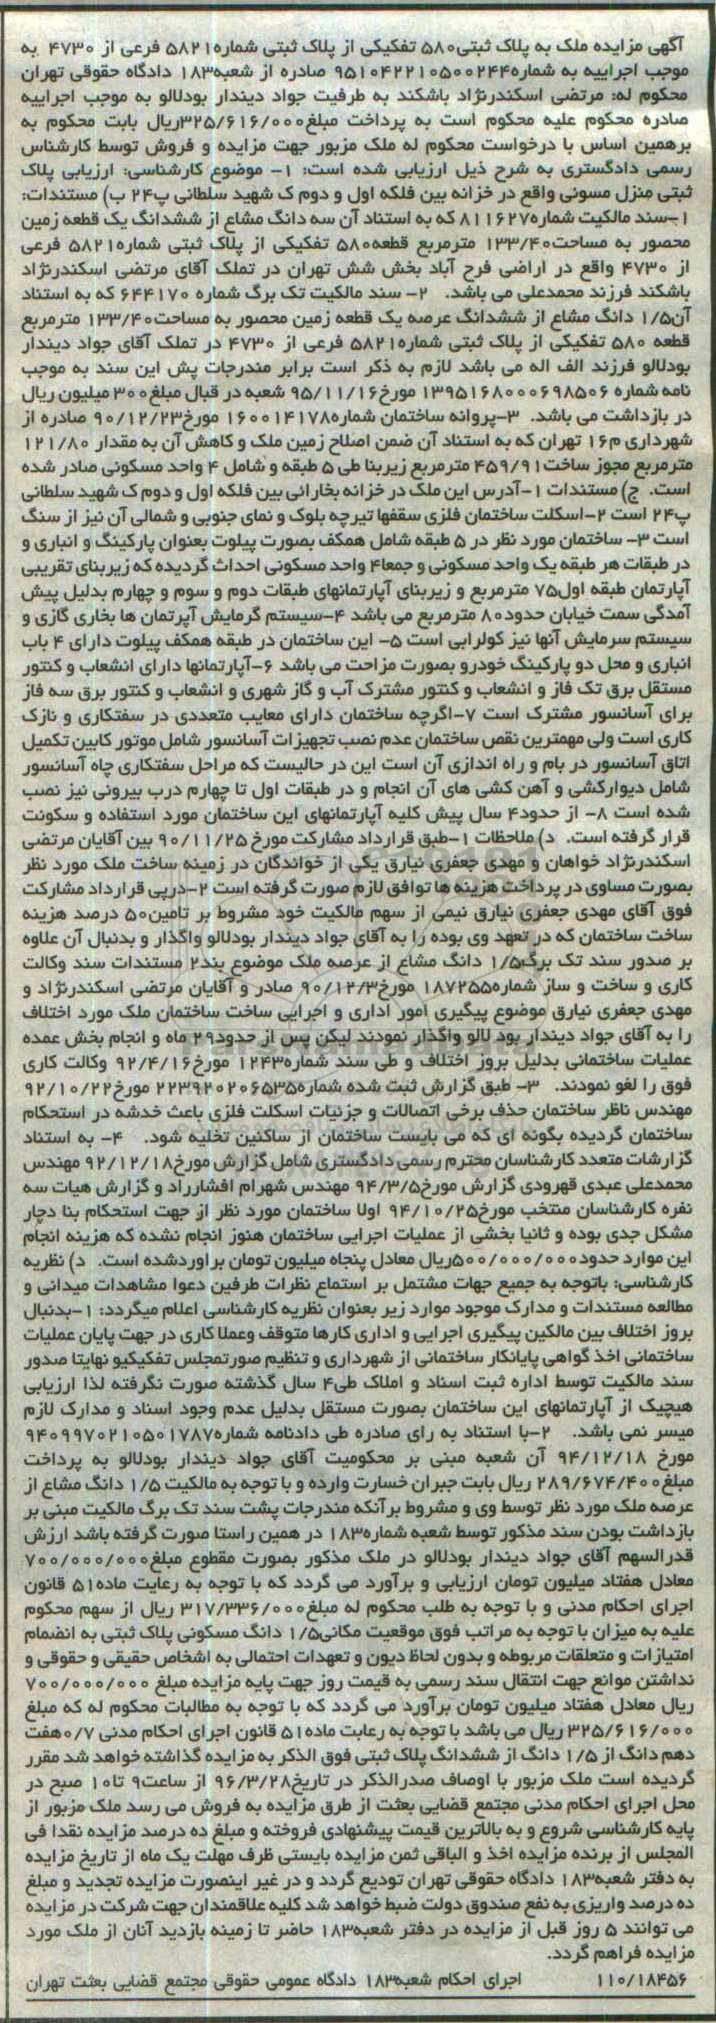 آگهی مزایده ملک به پلاک ثبتی۵۸۰ تفکیکی از پلاک ثبتی شماره۵۸۲۱ فرعی از ۴۷۳۰ به
موجب اجراییه به شماره۹۵۱۰۴۲۲۱۰۵۰۰۲۴۴ صادره از شعبه۱۸۳ دادگاه حقوقی تهران
محکوم له: مرتضی اسکندرنژاد باشکند به طرفیت جواد دیندار بودلالو به موجب اجراییه
صادره محکوم علیه محکوم است به پرداخت مبلغ۳۲۵/۶۱۶/۰۰۰ریال بابت محکوم به
برهمین اساس با درخواست محکوم له ملک مزبور جهت مزایده و فروش توسط کارشناس
رسمی دادگستری به شرح ذیل ارزیابی شده است: ۱- موضوع کارشناسی: ارزیابی پلاک
ثبتی منزل مسونی واقع در خزانه بین فلکه اول و دوم ک شهید سلطانی پ۲۴ ب) مستندات:
۱-سند مالکیت شماره۸۱۱۶۲۷ که به استناد آن سه دانگ مشاع از ششدانگ یک قطعه زمین
محصور به مساحت۱۳۳/۴۰ مترمربع قطعه۵۸۰ تفکیکی از پلاک ثبتی شماره۵۸۲۱ فرعی
از ۴۷۳۰ واقع در اراضی فرح آباد بخش شش تهران در تملک آقای مرتضی اسکندرنژاد
باشکند فرزند محمدعلی می باشد. ۲- سند مالکیت تک برگ شماره ۶۴۴۱۷۰ که به استناد
آن۱/۵ دانگ مشاع از ششدانگ عرصه یک قطعه زمین محصور به مساحت۱۳۳/۴۰ مترمربع
قطعه ۵۸۰ تفکیکی از پلاک ثبتی شماره۵۸۲۱ فرعی از ۴۷۳۰ در تملک آقای جواد دیندار
بودلالو فرزند الف اله می باشد لازم به ذکر است برابر مندرجات پش این سند به موجب
نامه شماره ۱۳۹۵۱۶۸۰۰۰۶۹۸۵۰۶ مورخ۹۵/۱۱/۱۶ شعبه در قبال مبلغ۳۰۰ میلیون ریال
در بازداشت می باشد. ۳-پروانه ساختمان شماره۱۶۰۰۱۴۱۷۸ مورخ۹۰/۱۲/۲۳ صادره از
شهرداری م۱۶ تهران که به استناد آن ضمن اصلاح زمین ملک و کاهش آن به مقدار ۱۲۱/۸۰
مترمربع مجوز ساخت۴۵۹/۹۱ مترمربع زیربنا طی ۵ طبقه و شامل ۴ واحد مسکونی صادر شده
است. ج) مستندات ۱-آدرس این ملک در خزانه بخارائی بین فلکه اول و دوم ک شهید سلطانی
پ۲۴ است ۲-اسکلت ساختمان فلزی سقفها تیرچه بلوک و نمای جنوبی و شمالی آن نیز از سنگ
است ۳- ساختمان مورد نظر در ۵ طبقه شامل همکف بصورت پیلوت بعنوان پارکینگ و انباری و
در طبقات هر طبقه یک واحد مسکونی و جمعا۴ واحد مسکونی احداث گردیده که زیربنای تقریبی
آپارتمان طبقه اول۷۵ مترمربع و زیربنای آپارتمانهای طبقات دوم و سوم و چهارم بدلیل پیش
آمدگی سمت خیابان حدود۸۰ مترمربع می باشد ۴-سیستم گرمایش آپرتمان ها بخاری گازی و
سیستم سرمایش آنها نیز کولرابی است ۵- این ساختمان در طبقه همکف پیلوت دارای ۴ باب
انباری و محل دو پارکینگ خودرو بصورت مزاحت می باشد ۶-آپارتمانها دارای انشعاب و کنتور
مستقل برق تک فاز و انشعاب و کنتور مشترک آب و گاز شهری و انشعاب و کنتور برق سه فاز
برای آسانسور مشترک است ۷-اگرچه ساختمان دارای معایب متعددی در سفتکاری و نازک
کاری است ولی مهمترین نقص ساختمان عدم نصب تجهیزات آسانسور شامل موتور کابین تکمیل
اتاق آسانسور در بام و راه اندازی آن است این در حالیست که مراحل سفتکاری چاه آسانسور
شامل دیوارکشی و آهن کشی های آن انجام و در طبقات اول تا چهارم درب بیرونی نیز نصب
شده است ۸- از حدود۴ سال پیش کلیه آپارتمانهای این ساختمان مورد استفاده و سکونت
قرار گرفته است. د) ملاحظات ۱-طبق قرارداد مشارکت مورخ ۹۰/۱۱/۲۵ بین آقایان مرتضی
اسکندرنژاد خواهان و مهدی جعفری نیارق یکی از خواندگان در زمینه ساخت ملک مورد نظر
بصورت مساوی در پرداخت هزینه ها توافق لازم صورت گرفته است ۲-درپی قرارداد مشارکت
فوق آقای مهدی جعفری نیارق نیمی از سهم مالکیت خود مشروط بر تامین۵۰ درصد هزینه
ساخت ساختمان که در تعهد وی بوده را به آقای جواد دیندار بودلالو واگذار و بدنبال آن علاوه
بر صدور سند تک برگ۱/۵ دانگ مشاع از عرصه ملک موضوع بند۲ مستندات سند وکالت
کاری و ساخت و ساز شماره۱۸۷۲۵۵ مورخ۹۰/۱۲/۳ صادر و آقایان مرتضی اسکندرنژاد و
مهدی جعفری نیارق موضوع پیگیری امور اداری و اجرایی ساخت ساختمان ملک مورد اختلاف
را به آقای جواد دیندار بود لالو واگذار نمودند لیکن پس از حدود۲۹ ماه و انجام بخش عمده
عملیات ساختمانی بدلیل بروز اختلاف و طی سند شماره۱۲۴۳ مورخ۹۲/۴/۱۶ وکالت کاری
فوق را لغو نمودند. ۳- طبق گزارش ثبت شده شماره۲۲۳۹۲۰۲۰۶۵۳۵ مورخ۹۲/۱۰/۲۲
مهندس ناظر ساختمان حذف برخی اتصالات و جزئیات اسکلت فلزی باعث خدشه در استحکام
ساختمان گردیده بگونه ای که می بایست ساختمان از ساکنین تخلیه شود. ۴- به استناد
گزارشات متعدد کارشناسان محترم رسمی دادگستری شامل گزارش مورخ۹۲/۱۲/۱۸ مهندس
محمدعلی عبدی قهرودی گزارش مورخ۹۴/۳/۵ مهندس شهرام افشارراد و گزارش هیات سه
نفره کارشناسان منتخب مورخ۹۴/۱۰/۲۵ اولا ساختمان مورد نظر از جهت استحکام بنا دچار
مشکل جدی بوده و ثانیا بخشی از عملیات اجرایی ساختمان هنوز انجام نشده که هزینه انجام
این موارد حدود۵۰۰/۰۰۰/۰۰۰ریال معادل پنجاه میلیون تومان براوردشده است. د) نظریه
کارشناسی: باتوجه به جمیع جهات مشتمل بر استماع نظرات طرفین دعوا مشاهدات میدانی و
مطالعه مستندات و مدارک موجود موارد زیر بعنوان نظریه کارشناسی اعلام میگردد: ۱-بدنبال
بروز اختلاف بین مالکین پیگیری اجرایی و اداری کارها متوقف وعملا کاری در جهت پایان عملیات
ساختمانی اخذ گواهی پایانکار ساختمانی از شهرداری و تنظیم صورتمجلس تفکیکیو نهایتا صدور
سند مالکیت توسط اداره ثبت اسناد و املاک طی۴ سال گذشته صورت نگرفته لذا ارزیابی
هیچیک از آپارتمانهای این ساختمان بصورت مستقل بدلیل عدم وجود اسناد و مدارک لازم
میسر نمی باشد. ۲-با استناد به رای صادره طی دادنامه شماره۹۴۰۹۹۷۰۲۱۰۵۰۱۷۸۷
مورخ ۹۴/۱۲/۱۸ آن شعبه مبنی بر محکومیت آقای جواد دیندار بودلالو به پرداخت
مبلغ۲۸۹/۶۷۴/۴۰۰ ریال بابت جبران خسارت وارده و با توجه به مالکیت ۱/۵ دانگ مشاع از
عرصه ملک مورد نظر توسط وی و مشروط برآنکه مندرجات پشت سند تک برگ مالکیت مبنی بر
بازداشت بودن سند مذکور توسط شعبه شماره۱۸۳ در همین راستا صورت گرفته باشد ارزش
قدرالسهم آقای جواد دیندار بودلالو در ملک مذکور بصورت مقطوع مبلغ۷۰۰/۰۰۰/۰۰۰
معادل هفتاد میلیون تومان ارزیابی و برآورد می گردد که با توجه به رعایت ماده۵۱ قانون
اجرای احکام مدنی و با توجه به طلب محکوم له مبلغ۳۱۷/۳۳۶/۰۰۰ ریال از سهم محکوم
علیه به میزان با توجه به مراتب فوق موقعیت مکانی۱/۵ دانگ مسکونی پلاک ثبتی به انضمام
امتیازات و متعلقات مربوطه و بدون لحاظ دیون و تعهدات احتمالی به اشخاص حقیقی و حقوقی و
نداشتن موانع جهت انتقال سند رسمی به قیمت روز جهت پایه مزایده مبلغ ۷۰۰/۰۰۰/۰۰۰
ریال معادل هفتاد میلیون تومان برآورد می گردد که با توجه به مطالبات محکوم له که مبلغ
۳۲۵/۶۱۶/۰۰۰ ریال می باشد با توجه به رعابت ماده۵۱ قانون اجرای احکام مدنی ۰/۷هفت
دهم دانگ از ۱/۵ دانگ از ششدانگ پلاک ثبتی فوق الذکر به مزایده گذاشته خواهد شد مقرر
گردیده است ملک مزبور با اوصاف صدرالذکر در تاریخ۹۶/۳/۲۸ از ساعت۹ تا۱۰ صبح در
محل اجرای احکام مدنی مجتمع قضایی بعثت از طرق مزایده به فروش می رسد ملک مزبور از
پایه کارشناسی شروع و به بالاترین قیمت پیشنهادی فروخته و مبلغ ده درصد مزایده نقدا فی
المجلس از برنده مزایده اخذ و الباقی ثمن مزایده بایستی ظرف مهلت یک ماه از تاریخ مزایده
به دفتر شعبه۱۸۳ دادگاه حقوقی تهران تودیع گردد و در غیر اینصورت مزایده تجدید و مبلغ
ده درصد واریزی به نفع صندوق دولت ضبط خواهد شد کلیه علاقمندان جهت شرکت در مزایده
می توانند ۵ روز قبل از مزایده در دفتر شعبه۱۸۳ حاضر تا زمینه بازدید آنان از ملک مورد
مزایده فراهم گردد.
۱۱۰/۱۸۴۵۶ اجرای احکام شعبه۱۸۳ دادگاه عمومی حقوقی مجتمع قضایی بعثت تهران